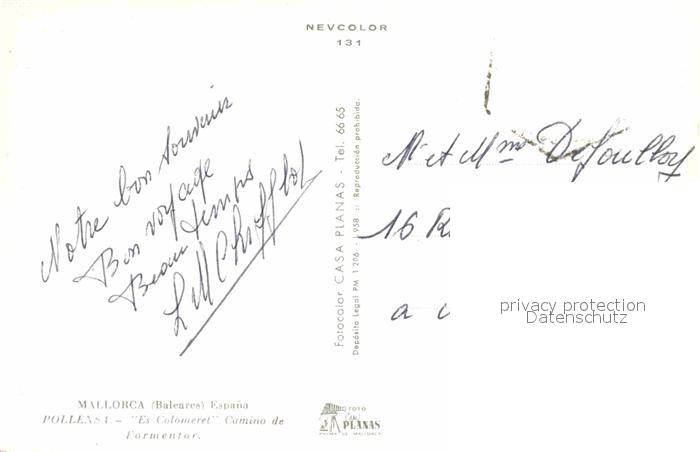 NEVCOLOR
131
Notre bon souvenir
Bon voyage
Beau temps
Mr et Mme Defoulloy
16 R
a
Fotocolor CASA PLANAS - Tel. 66 65
Depósito Legal PM 1206 - 1958 :: Reproducción prohibida.
privacy protection
Datenschutz
MALLORCA (Baleares) España
POLLENSA. - "Es Colomeret" Camino de
Formentor.
FOTO
CASA
PLANAS
PALMA DE MALLORCA